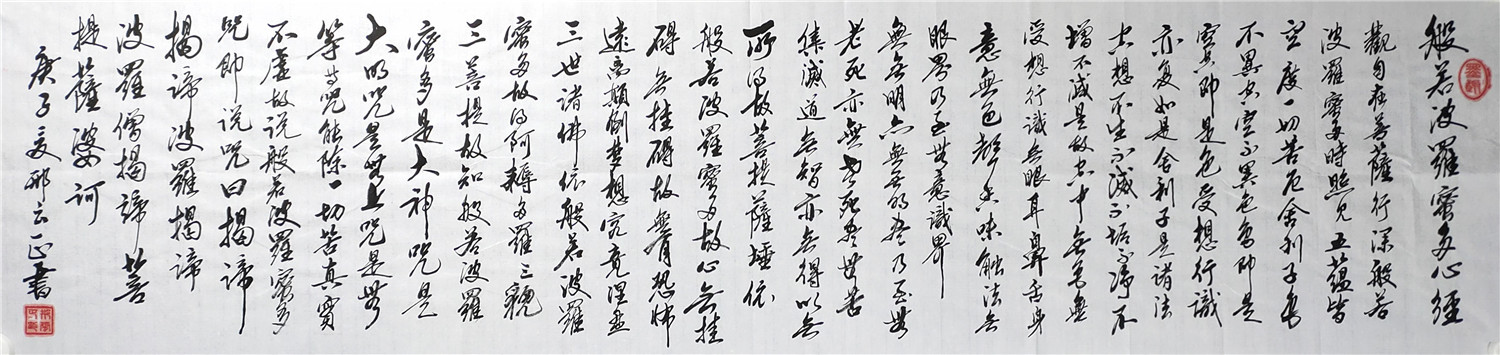 般若波羅蜜多心經
觀自在菩薩行深般若
波羅蜜多時照見五蘊皆
空度一切苦厄舍利子色
不異空空不異色色即是
空空即是色受想行識
亦復如是舍利子是諸法
空想不生不滅不垢不淨不
增不減是故空中無色無
受想行識無眼耳鼻舌身
意無色聲香味觸法無
眼界乃至無意識界
無無明亦無無明盡乃至無
老死亦無老死盡無苦
集滅道無智亦無得以無
所得故菩提薩埵依
般若波羅蜜多故心無挂
礙無挂礙故無有恐怖
遠離顛倒夢想究竟涅盤
三世諸佛依般若波羅
蜜多故得阿耨多羅三藐
三菩提故知般若波羅
蜜多是大神咒是
大明咒是無上咒是無
等等咒能除一切苦真實
不虛故說般若波羅蜜多
咒即說咒曰揭諦
揭諦波羅揭諦
波羅僧揭諦菩
提薩婆訶
庚子夏邢云正書